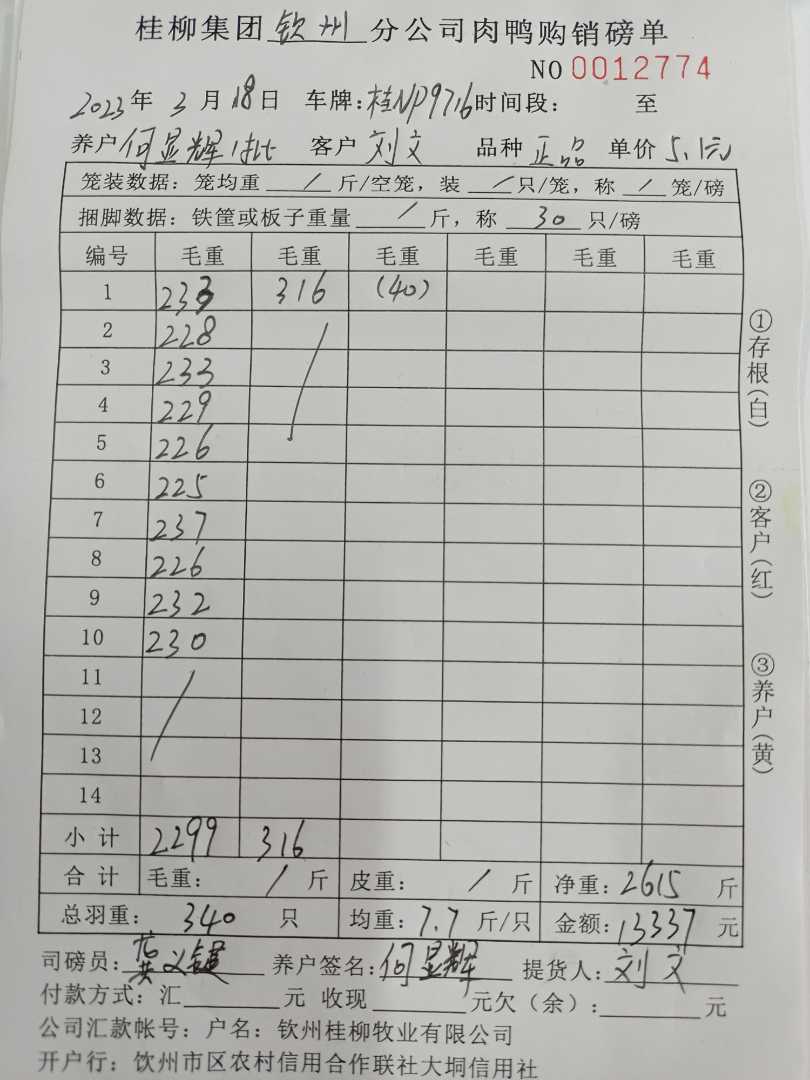 桂柳集团钦州分公司肉鸭购销磅单
NO 0012774
2023年3月18日 车牌:桂NP9716时间段: 至
养户何显辉1批 客户刘文 品种正品 单价5.1元
笼装数据:笼均重/斤/空笼,装/只/笼,称/笼/磅
捆脚数据:铁筐或板子重量/斤,称30只/磅
编号 毛重 毛重 毛重 毛重 毛重 毛重
1 233 316 (40)
2 228
3 233
4 229
5 226
6 225
7 237
8 226
9 232
10 230
11
12
13
14
小计 2299 316
合计 毛重: / 斤 皮重: / 斤 净重:2615斤
总羽重: 340 只 均重:7.7斤/只 金额:13337元
司磅员:黄义键 养户签名:何显辉 提货人:刘文
付款方式:汇 元 收现 元欠(余): 元
公司汇款帐号:户名:钦州桂柳牧业有限公司
开户行:饮州市区农村信用合作联社大垌信用社
①存根(白)
②客户(红)
③养户(黄)